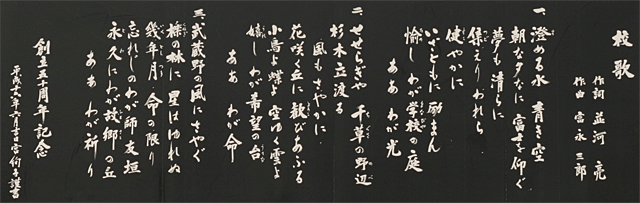 校歌
作詞 益河 亮
作曲 富永三郎
一、澄める水 青き空
朝な夕なに 富士を仰ぐ
夢も清らに
集えりわれら
いざともに励まん
健やかに
愉しわが学校の庭
ああ わが光
二、せせらぎや 千草の野辺
杉木立渡る
風もさやかに
花咲く丘に 歓びあふる
小鳥よ蝶よ 空ゆく雲よ
嬉し わが希望の台
ああ わが命
三、武蔵野の風にさやぐ
櫟の林に 星はゆれぬ
幾年月 命の限り
忘れじのわが師友垣
永久にわが故郷の丘
ああ わが祈り
創立五十周年記念